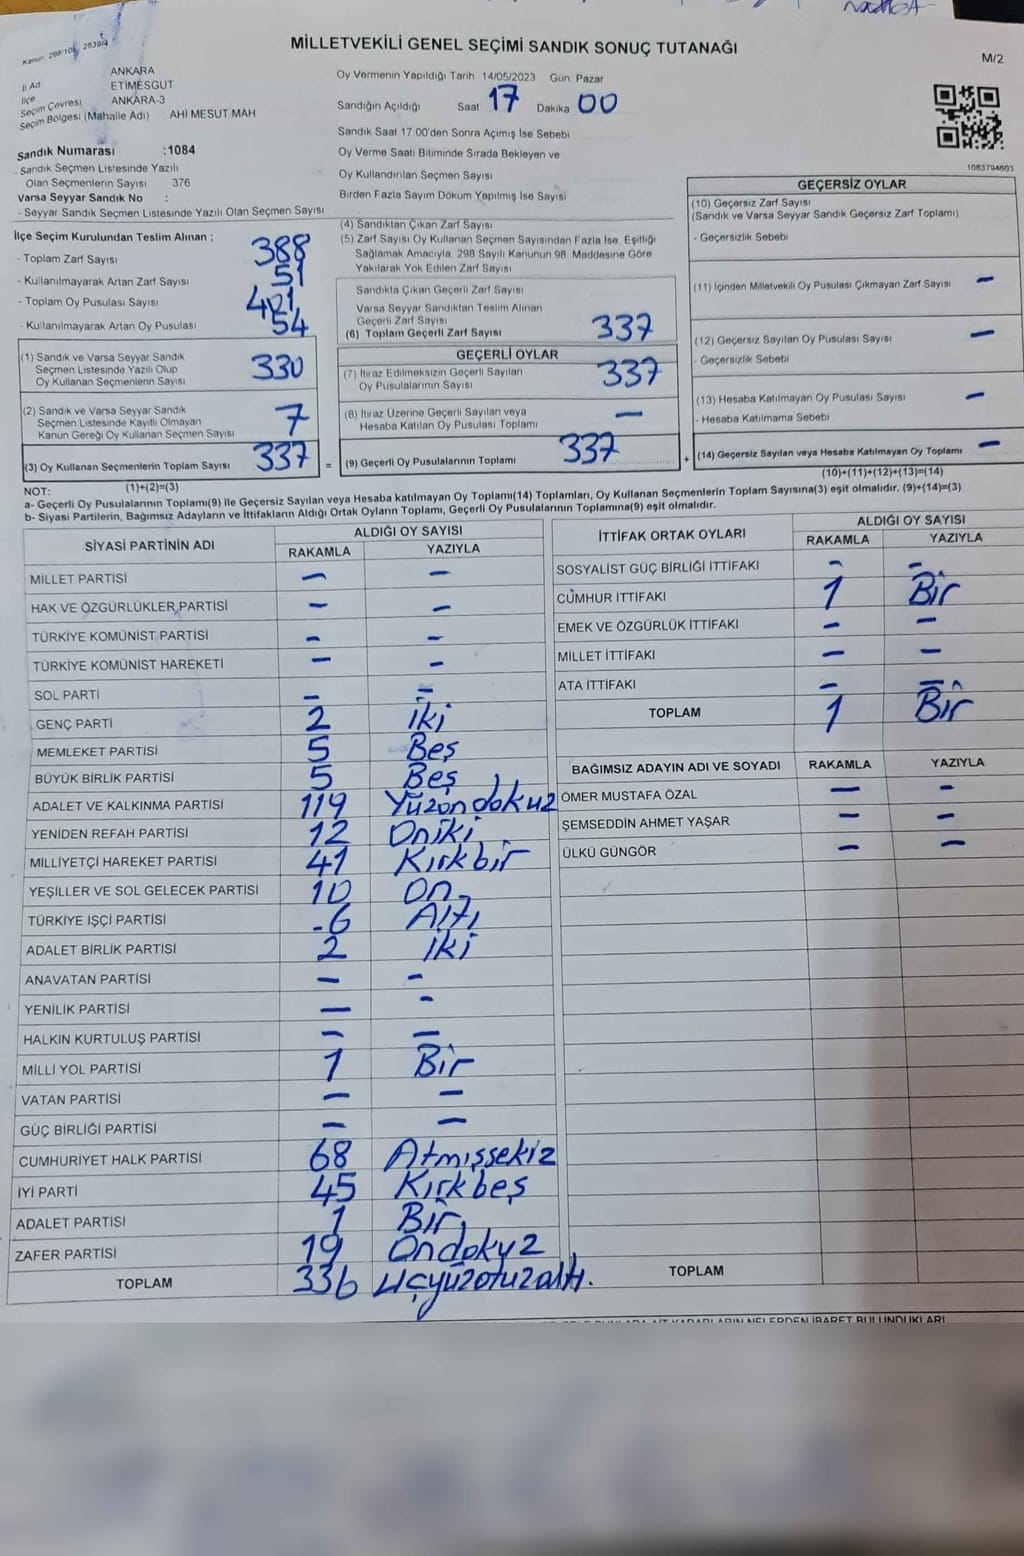 Kanun: 298/105, 2839/4
MİLLETVEKİLİ GENEL SEÇİMİ SANDIK SONUÇ TUTANAĞI
M/2
İl Adı ANKARA
İlçe ETİMESGUT
Seçim Çevresi ANKARA-3
Seçim Bölgesi (Mahalle Adı) AHİ MESUT MAH
Sandık Numarası :1084
Sandık Seçmen Listesinde Yazılı
Olan Seçmenlerin Sayısı 376
Varsa Seyyar Sandık No :
- Seyyar Sandık Seçmen Listesinde Yazılı Olan Seçmen Sayısı
Oy Vermenin Yapıldığı Tarih 14/05/2023 Gün Pazar
Sandığın Açıldığı Saat 17 Dakika 00
Sandık Saat 17 00'den Sonra Açımış İse Sebebi
Oy Verme Saati Bitiminde Sırada Bekleyen ve
Oy Kullandırılan Seçmen Sayısı
Birden Fazla Sayım Döküm Yapılmış İse Sayısı
1083794603
İlçe Seçim Kurulundan Teslim Alınan ;
- Toplam Zarf Sayısı 388
- Kullanılmayarak Artan Zarf Sayısı 51
- Toplam Oy Pusulası Sayısı
- Kullanılmayarak Artan Oy Pusulası 54
(1) Sandık ve Varsa Seyyar Sandık
Seçmen Listesinde Yazılı Olup
Oy Kullanan Seçmenlerin Sayısı 330
(2) Sandık ve Varsa Seyyar Sandık
Seçmen Listesinde Kayıtlı Olmayan
Kanun Gereği Oy Kullanan Seçmen Sayısı 7
(3) Oy Kullanan Seçmenlerin Toplam Sayısı 337 =
(1)+(2)=(3)
(4) Sandıktan Çıkan Zarf Sayısı
(5) Zarf Sayısı Oy Kullanan Seçmen Sayısından Fazla İse, Eşitliği
Sağlamak Amacıyla, 298 Sayılı Kanunun 98. Maddesine Göre
Yakılarak Yok Edilen Zarf Sayısı
Sandıkta Çıkan Geçerli Zarf Sayısı
Varsa Seyyar Sandıktan Teslim Alınan
Geçerli Zarf Sayısı
(6) Toplam Geçerli Zarf Sayısı 337
GEÇERLİ OYLAR
(7) İtiraz Edilmeksizin Geçerli Sayılan
Oy Pusulalarının Sayısı 337
(8) İtiraz Üzerine Geçerli Sayılan veya
Hesaba Katılan Oy Pusulası Toplamı —
(9) Geçerli Oy Pusulalarının Toplamı 337 +
GEÇERSİZ OYLAR
(10) Geçersiz Zarf Sayısı
(Sandık ve Varsa Seyyar Sandık Geçersiz Zarf Toplamı)
- Geçersizlik Sebebi
(11) İçinden Milletvekili Oy Pusulası Çıkmayan Zarf Sayısı —
(12) Geçersiz Sayılan Oy Pusulası Sayısı —
- Geçersizlik Sebebi
(13) Hesaba Katılmayan Oy Pusulası Sayısı —
- Hesaba Katılmama Sebebi
(14) Geçersiz Sayılan veya Hesaba Katılmayan Oy Toplamı —
(10)+(11)+(12)+(13)=(14)
NOT:
a- Geçerli Oy Pusulaları Toplamı(9) ile Geçersiz Sayılan veya Hesaba katılmayan Oy Toplamı(14) Toplamları, Oy Kullanan Seçmenlerin Toplam Sayısına(3) eşit olmalıdır. (9)+(14)=(3)
b- Siyasi Partilerin, Bağımsız Adayların ve İttifakların Aldığı Ortak Oyların Toplamı, Geçerli Oy Pusulalarının Toplamına(9) eşit olmalıdır.
SİYASİ PARTİNİN ADI
ALDIĞI OY SAYISI
RAKAMLA YAZIYLA
MİLLET PARTİSİ — —
HAK VE ÖZGÜRLÜKLER PARTİSİ — —
TÜRKİYE KOMÜNİST PARTİSİ — —
TÜRKİYE KOMÜNİST HAREKETİ — —
SOL PARTİ — —
GENÇ PARTİ 2 iki
MEMLEKET PARTİSİ 5 Beş
BÜYÜK BİRLİK PARTİSİ 5 Beş
ADALET VE KALKINMA PARTİSİ 119 Yüzondokuz
YENİDEN REFAH PARTİSİ 12 Oniki
MİLLİYETÇİ HAREKET PARTİSİ 41 Kırkbir
YEŞİLLER VE SOL GELECEK PARTİSİ 10 On
TÜRKİYE İŞÇİ PARTİSİ 6 Altı
ADALET BİRLİK PARTİSİ 2 iki
ANAVATAN PARTİSİ — —
YENİLİK PARTİSİ — —
HALKIN KURTULUŞ PARTİSİ — —
MİLLİ YOL PARTİSİ 1 Bir
VATAN PARTİSİ — —
GÜÇ BİRLİĞİ PARTİSİ — —
CUMHURİYET HALK PARTİSİ 68 Atmışsekiz
İYİ PARTİ 45 Kırkbeş
ADALET PARTİSİ 1 Bir
ZAFER PARTİSİ 19 Ondokuz
TOPLAM 336 Uçyüzotuzaltı.
İTTİFAK ORTAK OYLARI
ALDIĞI OY SAYISI
RAKAMLA YAZIYLA
SOSYALİST GÜÇ BİRLİĞİ İTTİFAKI — —
CUMHUR İTTİFAKI 1 Bir
EMEK VE ÖZGÜRLÜK İTTİFAKI — —
MİLLET İTTİFAKI — —
ATA İTTİFAKI — —
TOPLAM 1 Bir
BAĞIMSIZ ADAYIN ADI VE SOYADI RAKAMLA YAZIYLA
ÖMER MUSTAFA ÖZAL — —
ŞEMSEDDİN AHMET YAŞAR — —
ÜLKÜ GÜNGÖR — —
TOPLAM